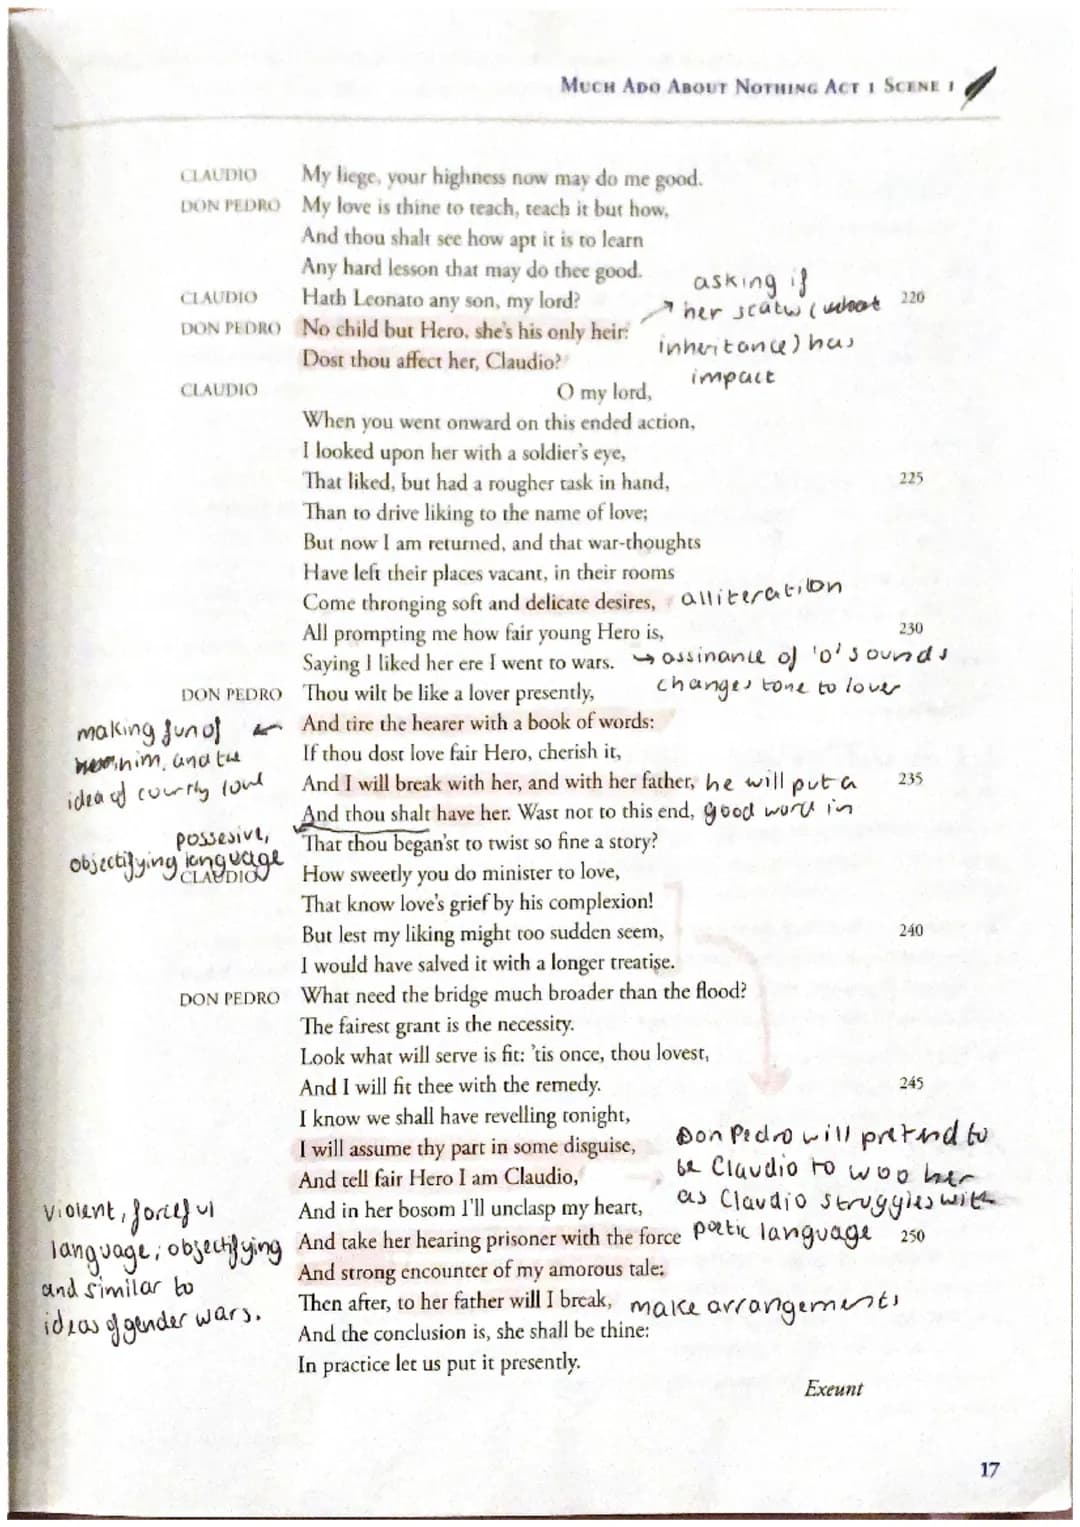 MUCH ADO ABOUT NOTHING ACT 1 SCENE 1
CLAUDIO My liege, your highness now may do me good.
DON PEDRO My love is thine to teach, teach it but how,
And thou shalt see how apt it is to learn
Any hard lesson that may do thee good.
asking if
CLAUDIO Hath Leonato any son, my lord? 220
her statu (what
DON PEDRO No child but Hero, she's his only heir:
inheritance) has
Dost thou affect her, Claudio?
impact
CLAUDIO O my lord,
When you went onward on this ended action,
I looked upon her with a soldier's eye,
That liked, but had a rougher task in hand, 225
Than to drive liking to the name of love;
But now I am returned, and that war-thoughts
Have left their places vacant, in their rooms
Come thronging soft and delicate desires, alliteration
All prompting me how fair young Hero is, 230
Saying I liked her ere I went to wars. → assinance of 'o' sounds
changes tone to lover
DON PEDRO Thou wilt be like a lover presently,
making fun of ← And tire the hearer with a book of words:
him, and the If thou dost love fair Hero, cherish it,
idea of courtly love And I will break with her, and with her father, he will put a 235
And thou shalt have her. Wast not to this end, good word in
possesive, That thou began'st to twist so fine a story?
objectifying language
CLAUDIO How sweetly you do minister to love,
That know love's grief by his complexion!
But lest my liking might too sudden seem, 240
I would have salved it with a longer treatise.
DON PEDRO What need the bridge much broader than the flood?
The fairest grant is the necessity.
Look what will serve is fit: 'tis once, thou lovest,
And I will fit thee with the remedy. 245
I know we shall have revelling tonight,
I will assume thy part in some disguise, Don Pedro will pretend to
And tell fair Hero I am Claudio, be Claudio to woo her
violent, forceful And in her bosom I'll unclasp my heart, as Claudio struggles with
language; objectifying And take her hearing prisoner with the force poetic language 250
and similar to And strong encounter of my amorous tale:
ideas of gender wars. Then after, to her father will I break, make arrangements
And the conclusion is, she shall be thine:
In practice let us put it presently.
Exeunt
17